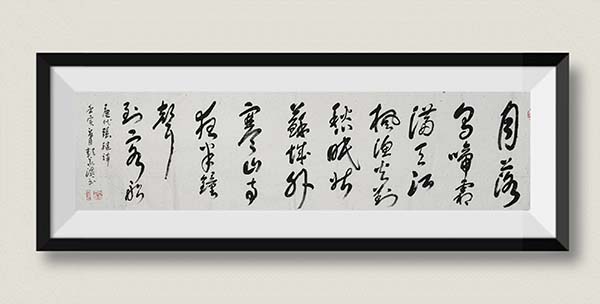 月落
烏啼霜
滿天江
楓漁火對
愁眠姑
蘇城外
寒山寺
夜半鐘
聲
到客船
唐代張繼詩
壬寅夏書